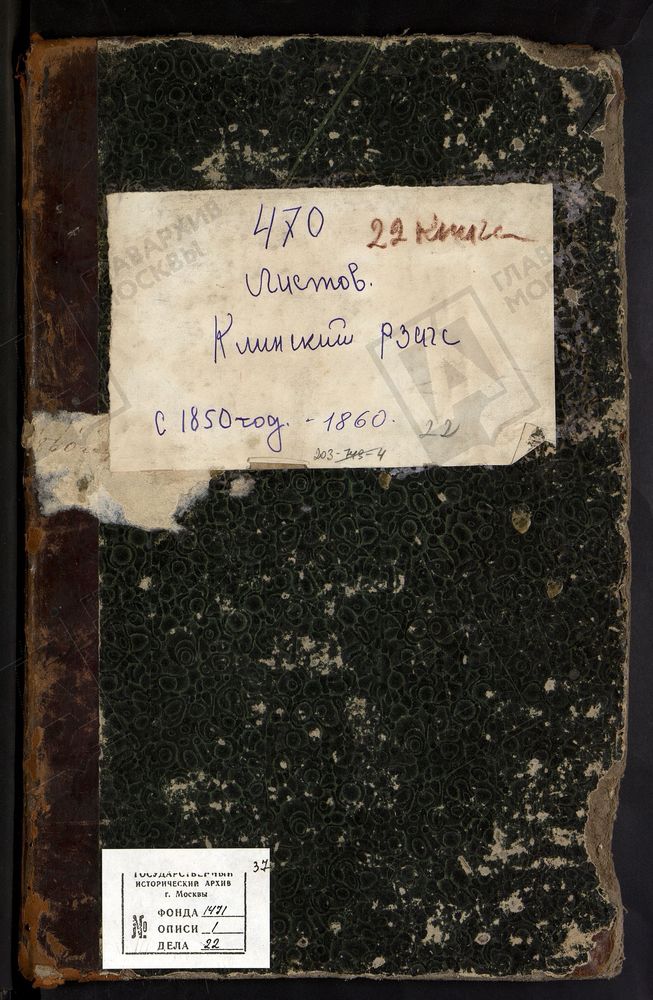 470 22 книга
Листов.
Клинский рзагс
С 1850 год. - 1860.
22
203-743-4
37
ГОСУДАРСТВЕННЫЙ
ИСТОРИЧЕСКИЙ АРХИВ
г. Москвы
№
ФОНДА 1471
ОПИСИ 1
ДЕЛА 22
ГЛАВАРХИВ
МОСКВЫ